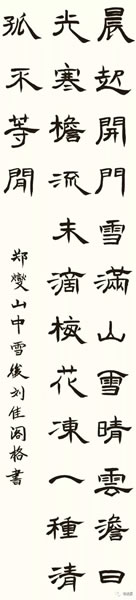 晨起開門雪滿山雪晴雲澹日
光寒檐流未滴梅花凍一種清
孤不等閒
郑燮山中雪後刘佳阁格書